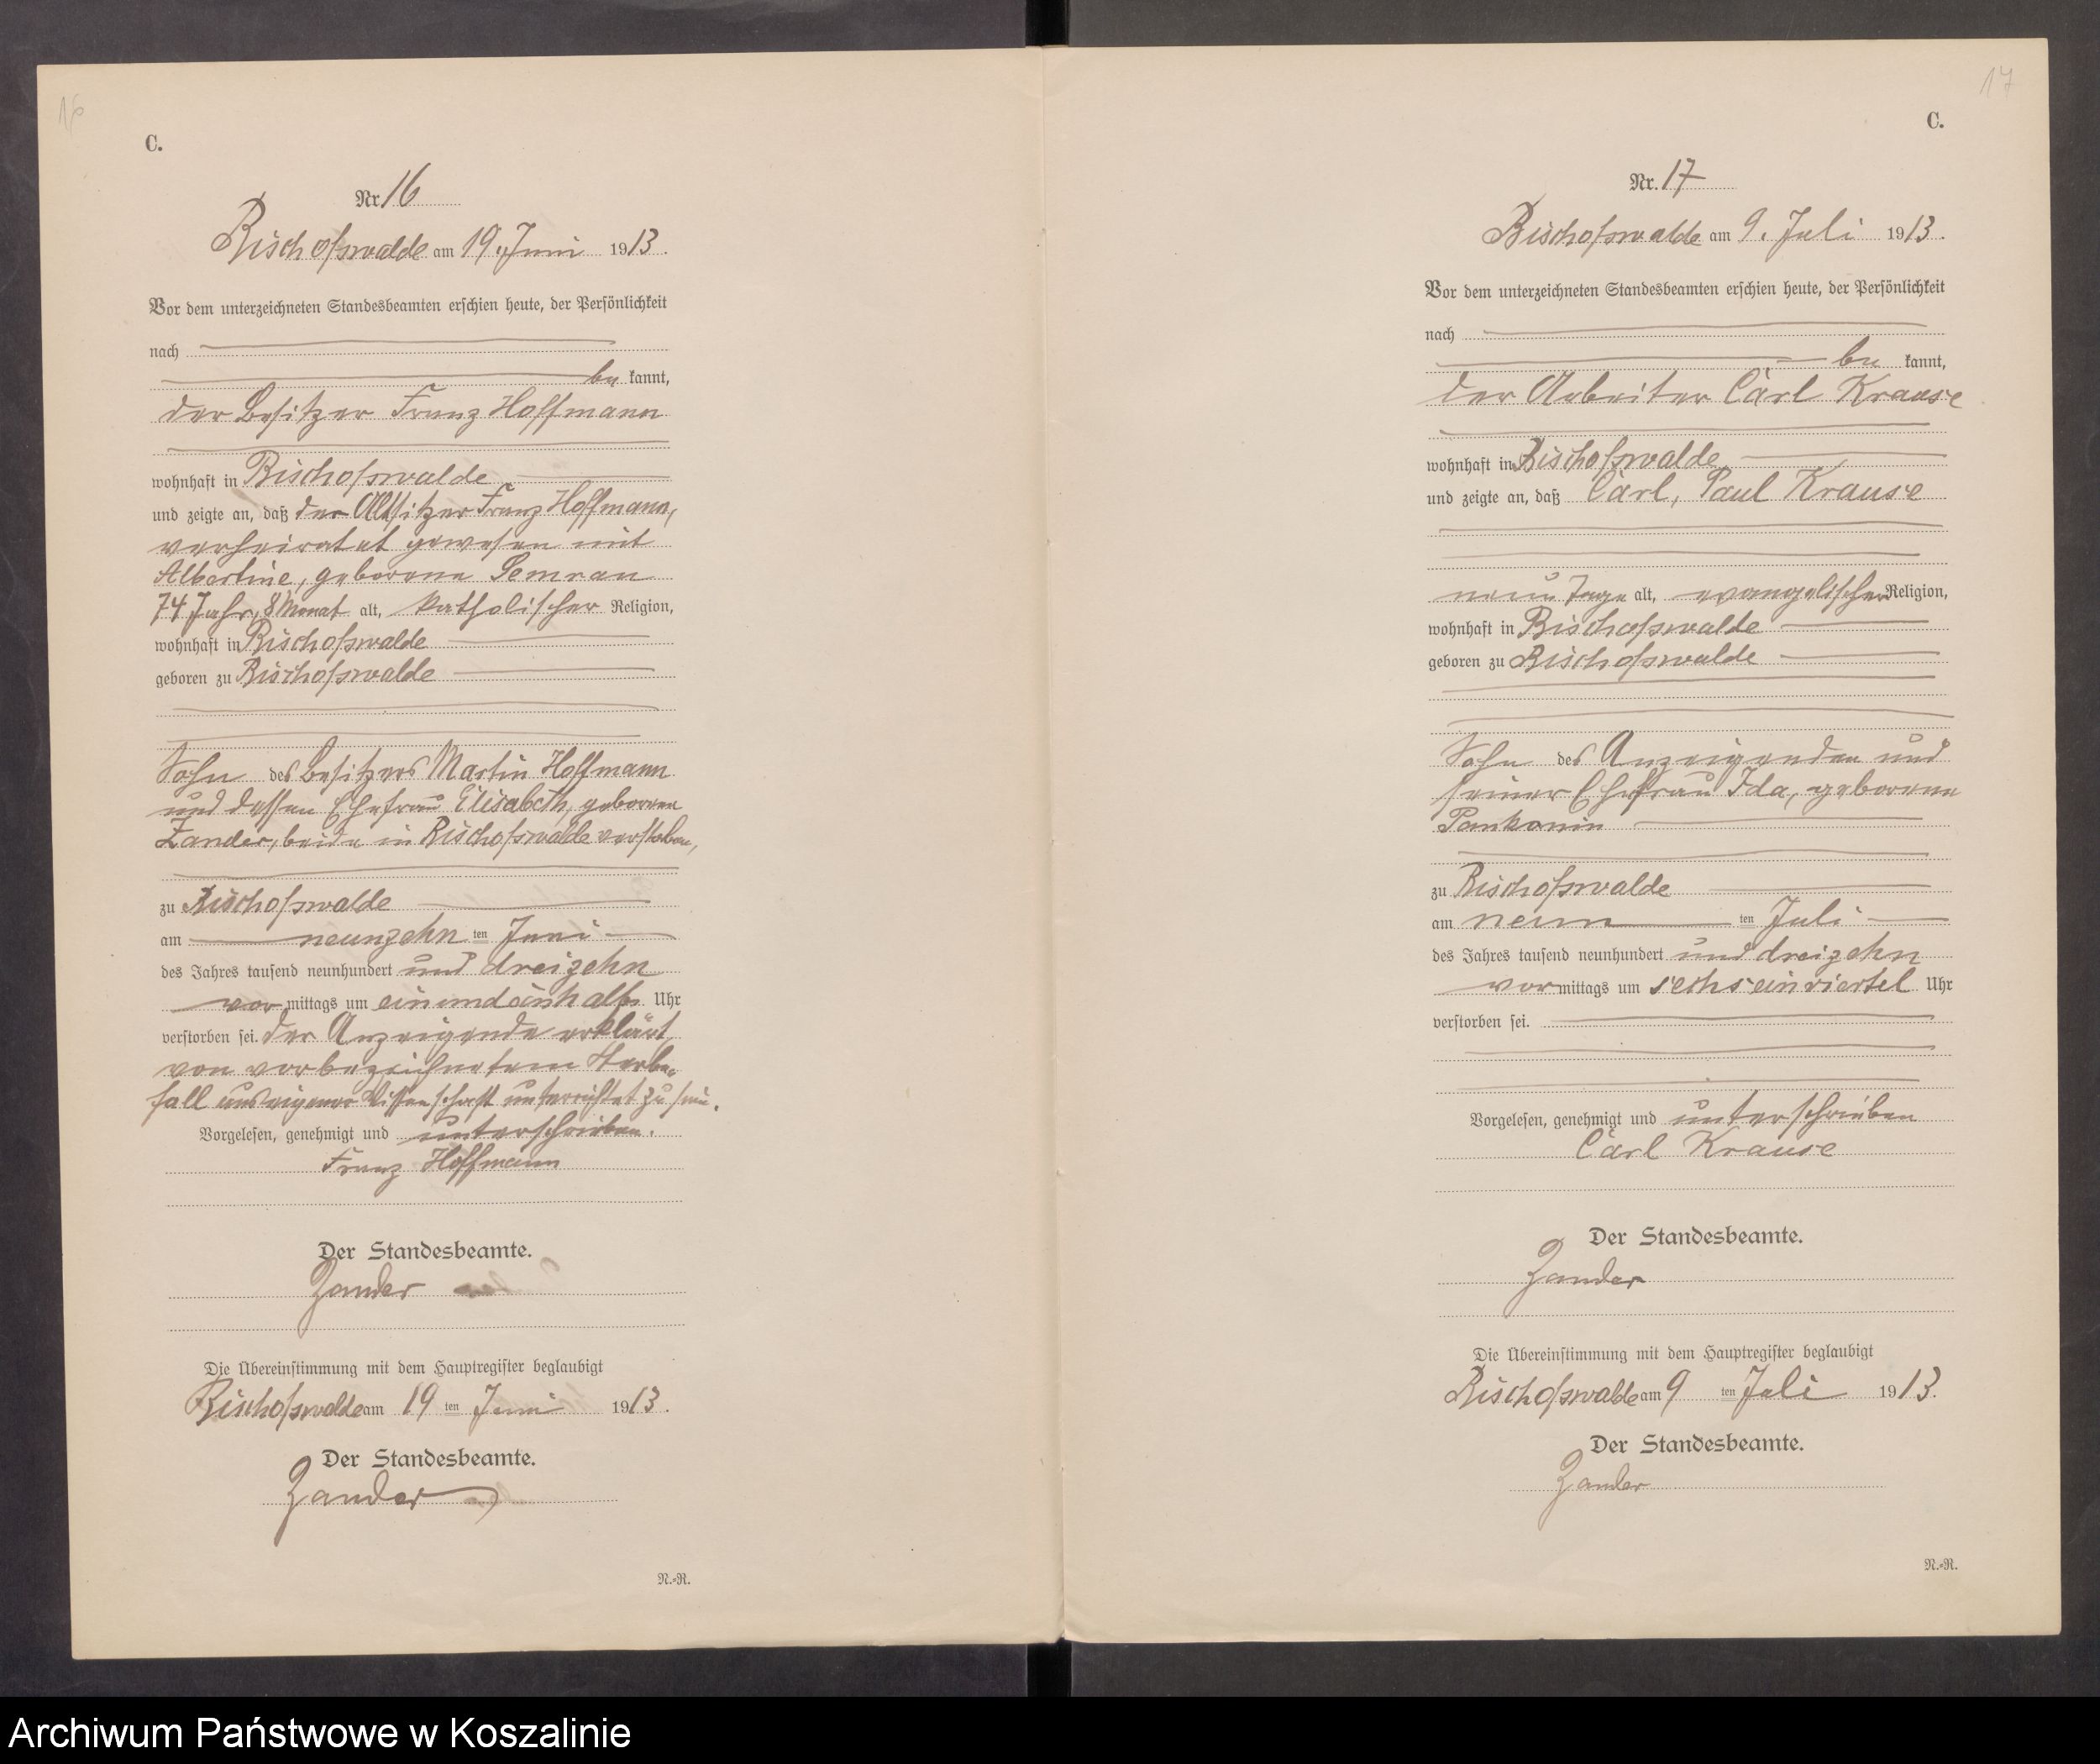 16
C.
Nr 16
Bischofswalde am 19. Juni 1913.
Vor dem unterzeichneten Standesbeamten erschien heute, der Persönlichkeit
nach
be kannt,
der Besitzer Franz Hoffmann
wohnhaft in Bischofswalde
und zeigte an, daß der Altsitzer Franz Hoffmann,
verheiratet gewesen mit
Albertine, geborene Semrau
74 Jahr, 8 Monat alt, katholischer Religion,
wohnhaft in Bischofswalde
geboren zu Bischofswalde
Sohn des Besitzers Martin Hoffmann
und dessen Ehefrau Elisabeth, geborene
Zander, beide in Bischofswalde verstorben,
zu Bischofswalde
am neunzehn ten Juni
des Jahres tausend neunhundert und dreizehn
vor mittags um ein und einhalb Uhr
verstorben sei. Der Anzeigende erklärt,
von vorbezeichnetem Sterbe-
fall aus eigener Wissenschaft unterrichtet zu sein.
Vorgelesen, genehmigt und unterschrieben.
Franz Hoffmann
Der Standesbeamte.
Zander
Die Übereinstimmung mit dem Hauptregister beglaubigt
Bischofswalde am 19 ten Juni 1913.
Der Standesbeamte.
Zander
N.=R.
17
C.
Nr. 17
Bischofswalde am 9. Juli 1913.
Vor dem unterzeichneten Standesbeamten erschien heute, der Persönlichkeit
nach
be kannt,
der Arbeiter Carl Krause
wohnhaft in Bischofswalde
und zeigte an, daß Carl, Paul Krause
neun Tage alt, evangelischer Religion,
wohnhaft in Bischofswalde
geboren zu Bischofswalde
Sohn des Anzeigenden und
seiner Ehefrau Ida, geborene
Pankonin
zu Bischofswalde
am neun ten Juli
des Jahres tausend neunhundert und dreizehn
vor mittags um sechs einviertel Uhr
verstorben sei.
Vorgelesen, genehmigt und unterschrieben
Carl Krause
Der Standesbeamte.
Zander
Die Übereinstimmung mit dem Hauptregister beglaubigt
Bischofswalde am 9 ten Juli 1913.
Der Standesbeamte.
Zander
N.=R.
Archiwum Państwowe w Koszalinie